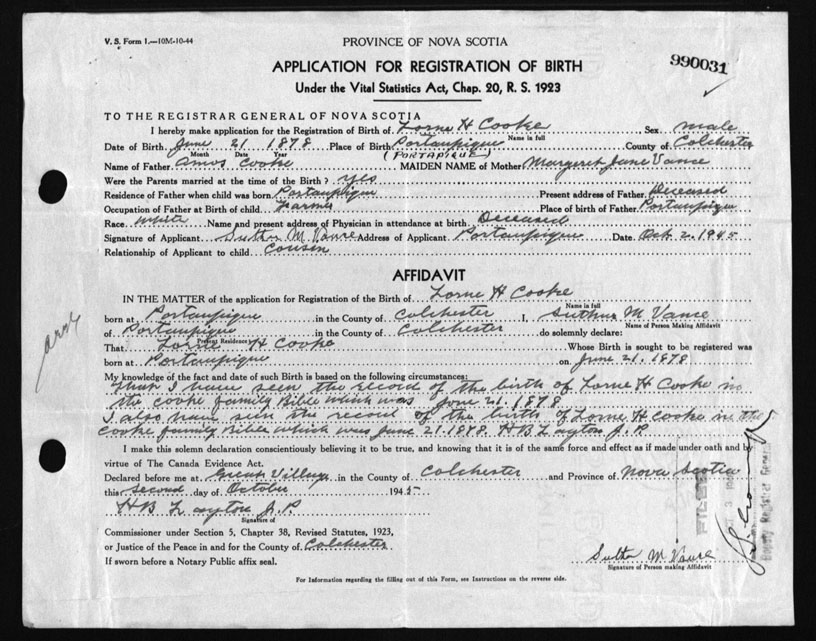 V. S. Form 1.—10M-10-44
PROVINCE OF NOVA SCOTIA
990031
APPLICATION FOR REGISTRATION OF BIRTH
Under the Vital Statistics Act, Chap. 20, R. S. 1923
TO THE REGISTRAR GENERAL OF NOVA SCOTIA
I hereby make application for the Registration of Birth of Lorne H Cooke Sex male
Name in full
Date of Birth June 21 1878 Place of Birth Portaupique County of Colchester
Month Date Year (PORTAPIQUE)
Name of Father Amos Cooke MAIDEN NAME of Mother Margaret Jane Vance
Were the Parents married at the time of the Birth? yes
Residence of Father when child was born Portaupique Present address of Father Deceased
Occupation of Father at Birth of child Farmer Place of birth of Father Portaupique
Race white Name and present address of Physician in attendance at birth Deceased
Signature of Applicant M Vance Address of Applicant Portaupique Date Oct 2, 1945
Relationship of Applicant to child Cousin
AFFIDAVIT
IN THE MATTER of the application for Registration of the Birth of Lorne H Cooke
Name in full
born at Portaupique in the County of Colchester I, M Vance
Name of Person Making Affidavit
of Portaupique in the County of Colchester do solemnly declare:
Present Residence
That Lorne H Cooke Whose Birth is sought to be registered was
born at Portaupique on June 21, 1878
My knowledge of the fact and date of such Birth is based on the following circumstances:
That I have seen the record of the birth of Lorne H Cooke in
the Cooke family Bible which was June 21, 1878
I also have seen the record of the birth of Lorne H Cooke in the
Cooke family Bible which was June 21. 1878. H B Layton J. P.
I make this solemn declaration conscientiously believing it to be true, and knowing that it is of the same force and effect as if made under oath and by
virtue of The Canada Evidence Act.
Declared before me at Great Village in the County of Colchester and Province of Nova Scotia
this Second day of October 1945
H B Layton J. P.
Signature of
Commissioner under Section 5, Chapter 38, Revised Statutes, 1923,
or Justice of the Peace in and for the County of Colchester
If sworn before a Notary Public affix seal.
M Vance
Signature of Person making Affidavit
For Information regarding the filling out of this Form, see Instructions on the reverse side.
FILED
Deputy Registrar General